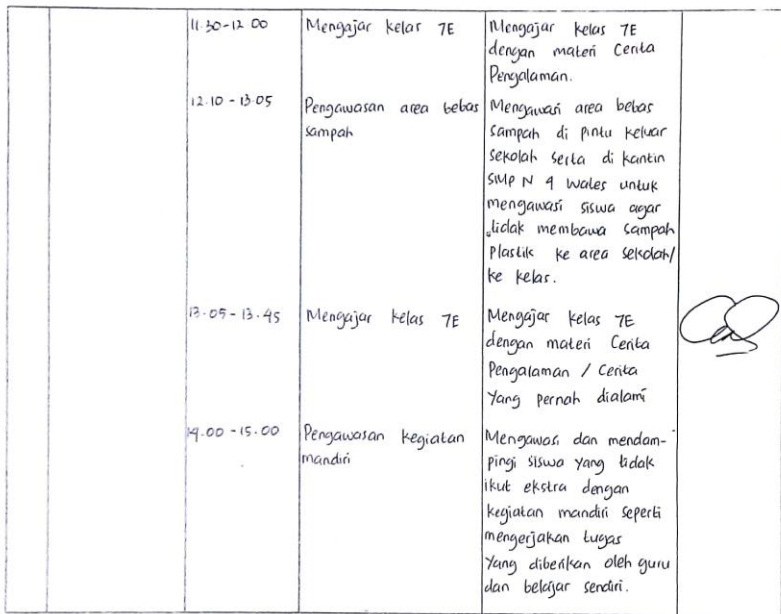 11.30-12.00 Mengajar kelas 7E Mengajar kelas 7E
dengan materi Cerita
Pengalaman.
12.10 - 13.05 Pengawasan area bebas Mengawasi area bebas
sampah sampah di pintu keluar
sekolah serta di kantin
SMP N 4 Wates untuk
mengawasi siswa agar
tidak membawa sampah
Plastik ke area sekolah/
ke kelas.
13.05 - 13.45 Mengajar kelas 7E Mengajar kelas 7E
dengan materi Cerita
Pengalaman / Cerita
Yang pernah dialami
14.00 - 15.00 Pengawasan kegiatan Mengawasi dan mendam-
mandiri pingi siswa yang tidak
ikut ekstra dengan
kegiatan mandiri seperti
mengerjakan tugas
Yang diberikan oleh guru
dan belajar sendiri.